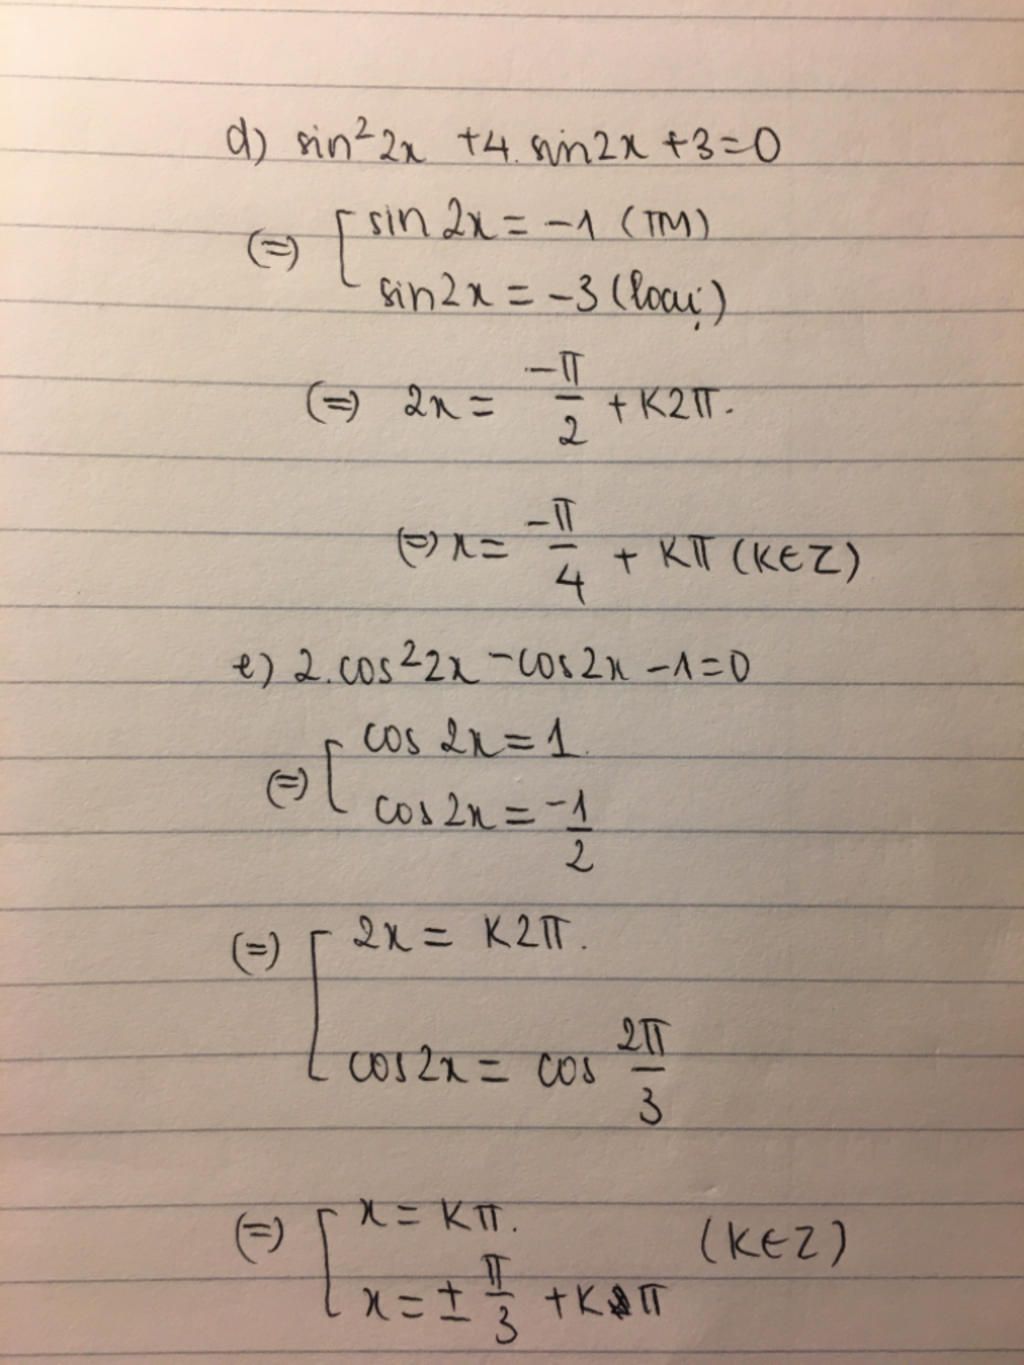 d) sin² 2x + 4. sin2x + 3 = 0
(=) [ sin 2x = -1 (TM)
sin2x = -3 (loại)
(=) 2x = -π/2 + K2π.
(=) x = -π/4 + Kπ (K∈Z)
e) 2.cos² 2x - cos2x - 1 = 0
(=) [ cos 2x = 1.
cos2x = -1/2
(=) [ 2x = K2π.
cos2x = cos 2π/3
(=) [ x = Kπ. (K∈Z)
x = ± π/3 + Kπ